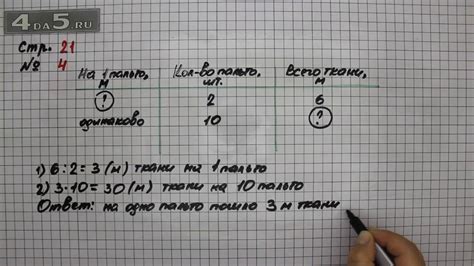 4DA5.RU
Стр. 21
№ 4
На 1 пальто, м
Кол-во пальто, шт.
Всего ткани, м
? 2 6
одинаково 10 ?
1) 6:2=3(м) ткани на 1 пальто
2) 3·10=30(м) ткани на 10 пальто
Ответ: на одно пальто пошло 3 м ткани